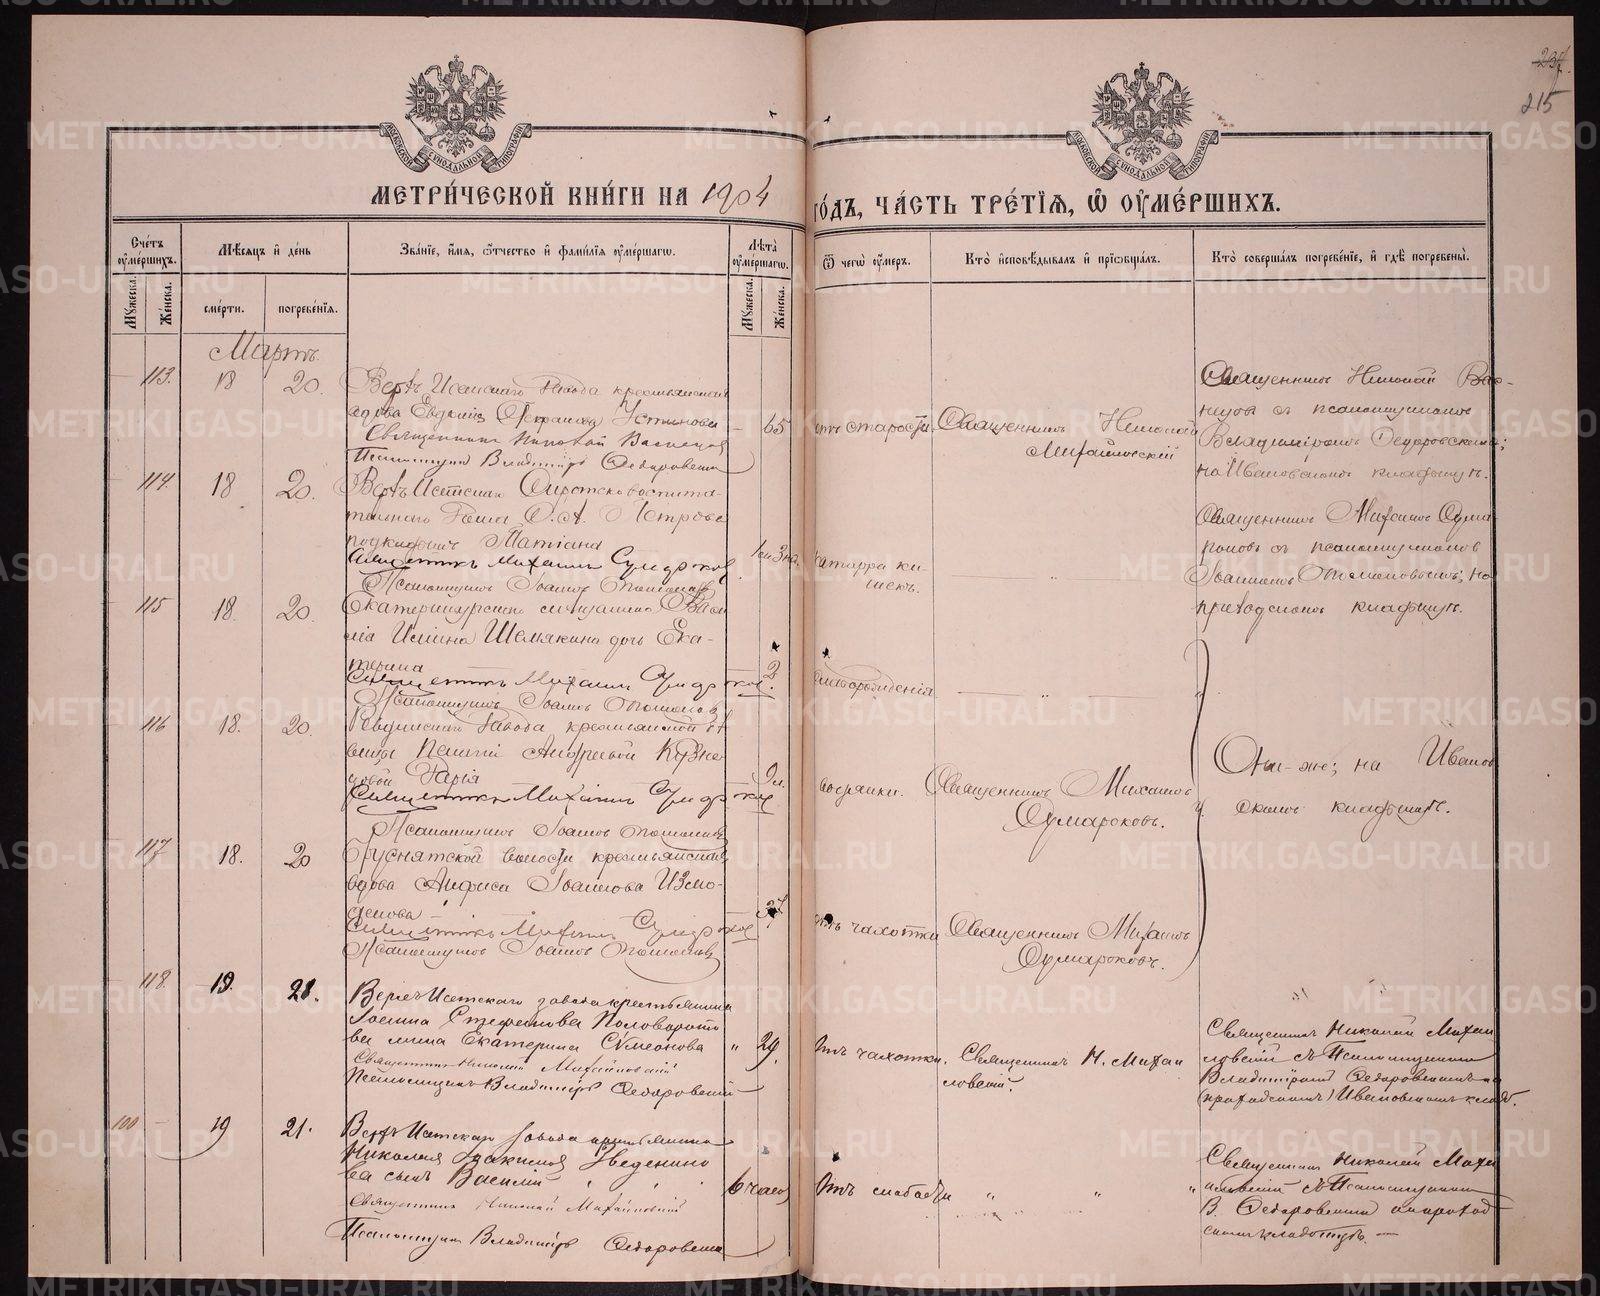 237.
215
МЕТРИ́ЧЕСКОЙ КНИ́ГИ НА 1904
ГО́ДЪ, ЧА́СТЬ ТРЕ́ТІѦ, Ѡ҆ ОУ҆МЕ́РШИХЪ.
Сче́тъ оу҆ме́ршихъ.
Мѣ́сяцъ и҆ де́нь
Зва́ніе, и҆́мѧ, ѻ҆́тчество и҆ фами́лїѧ оу҆ме́ршагѡ.
Лѣ́та оу҆ме́ршагѡ.
Ѿ чегѡ̀ оу҆́меръ.
Кто̀ и҆сповѣ́дывалъ и҆ прїѡбща́лъ.
Кто̀ соверша́лъ погребе́нїе, и҆ гдѣ̀ погребены̀.
Му́жеска.
Же́нска.
сме́рти.
погребе́нїѧ.
Му́жеска.
Же́нска.
Мартъ.
113.
18
20.
Верхъ Исетскаго завода крестьянская
вдова Евдокия Устинова
Священникъ Николай Васнецов
Псаломщикъ Владимiръ Федоровский
65
отъ старости.
Священникъ Николай
Михайловскій
Священникъ Николай Вас-
нецовъ съ псаломщикомъ
Владимiромъ Федоровскимъ;
на Ивановскомъ кладбищѣ.
114.
18
20.
Верхъ Исетскаго Сиротско воспита-
тельнаго Дома О. А. Петрова
подкидышъ Татіана
Священникъ Михаилъ Сумароков
Псаломщикъ Іоаннъ
катарра ки-
шекъ.
Священникъ Михаилъ Сума-
роковъ съ псаломщикомъ
Іоанномъ на
приходскомъ кладбищѣ.
115
18
20.
Екатеринбургскаго мѣщанина Васи
лія Ильина Шемякина дочь Ека-
терина
Священникъ Михаилъ Сумароков
Псаломщикъ Іоаннъ
2.
слаборожденія
116
18.
20.
Ревдинскаго завода крестьянской дѣ
вицы Андреевой Кузне
цовой Дарія
Священникъ Михаилъ Сумароков
Псаломщикъ Іоаннъ
Священникъ Михаилъ
Сумароковъ.
Они-же; на Иванов
скомъ кладбищѣ.
117
18.
20
волости крестьянская
вдова Анфиса Іоаннова Измо-
денова
Священникъ Михаилъ Сумароков
Псаломщикъ Іоаннъ
37
отъ чахотки
Священникъ Михаилъ
Сумароковъ.
118.
19.
21.
Верхъ Исетскаго завода крестьянина
Іоанна Стефанова Половорото
ва жена Екатерина Сѵмеонова
Священникъ Николай Михайловскій
Псаломщикъ Владимiръ Федоровскій
"
29.
Отъ чахотки.
Священникъ Н. Михай
ловскій.
Священникъ Николай Михай
ловскій съ Псаломщикомъ
Владимiромъ Федоровскимъ на
(приходскомъ) Ивановскомъ кладб.
100
19
21.
Верхъ Исетскаго завода крестьянина
Николая Іоакимова Зведенино
ва сынъ Василій
Священникъ Николай Михайловскій
Псаломщикъ Владимiръ Федоровскій
6 часов
Отъ слабости
"
"
"
Священникъ Николай Михай
ловскій съ Псаломщикомъ
В. Федоровскимъ на приход
скомъ кладбищѣ. —